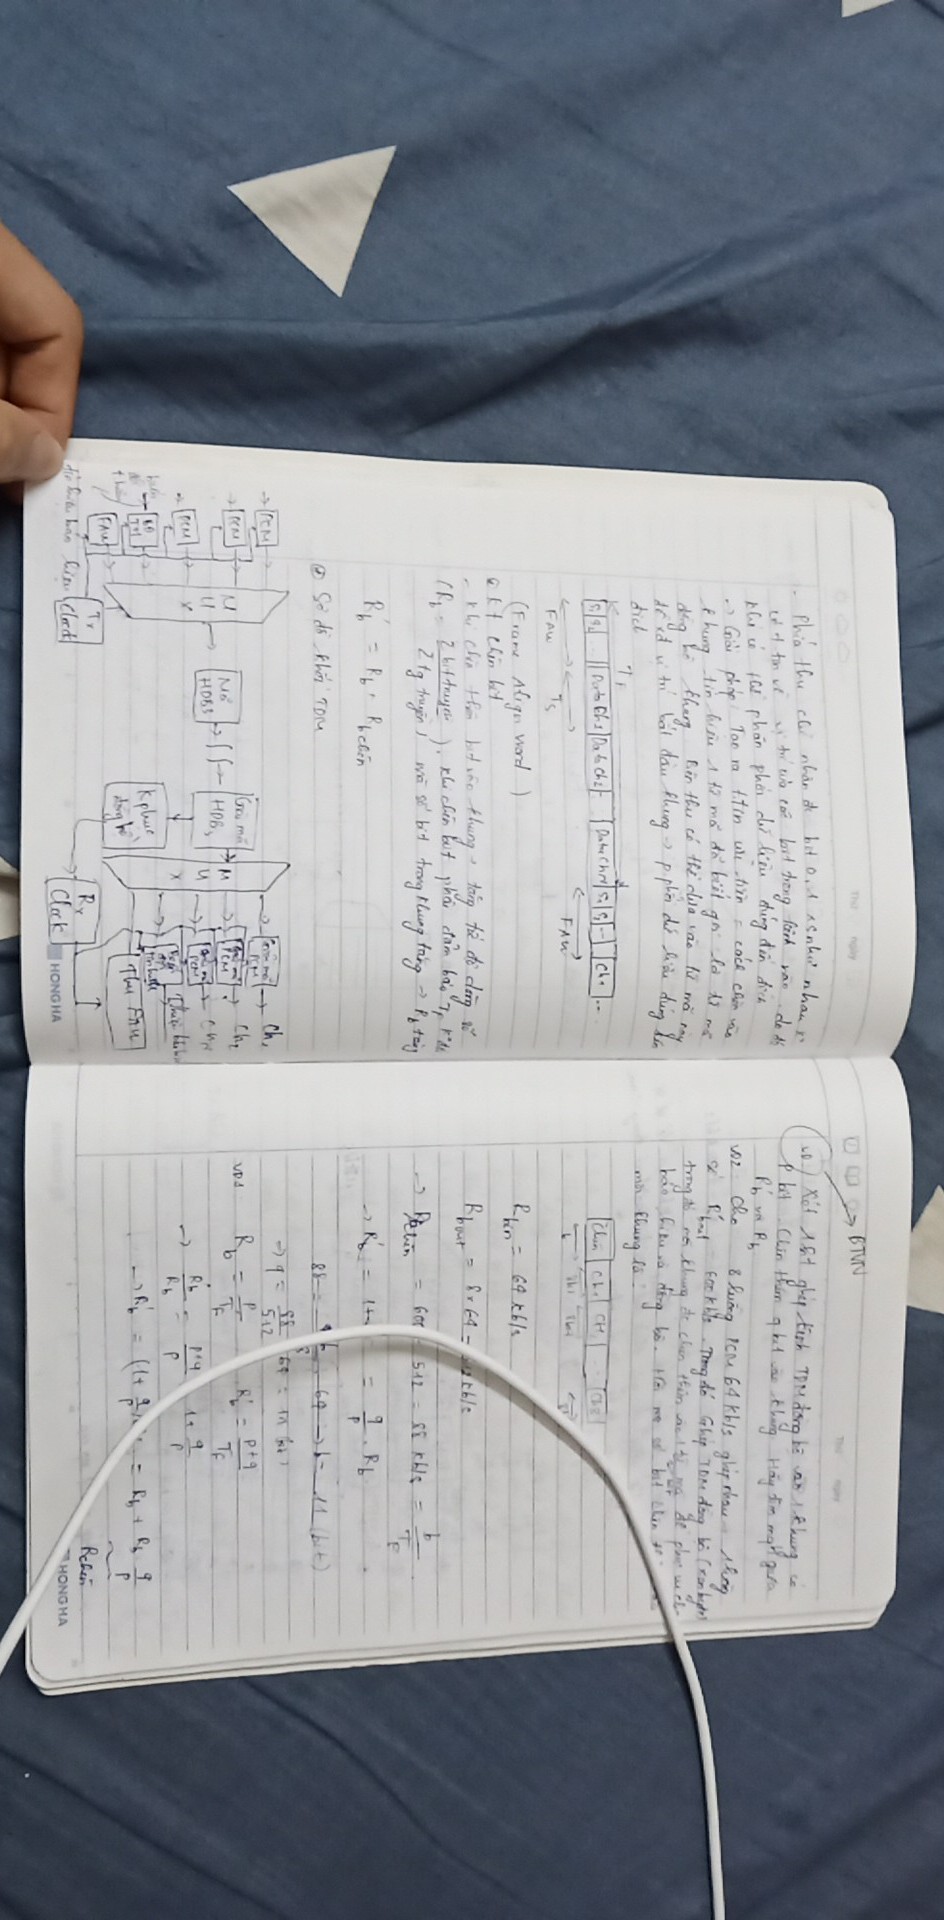 Thứ ngày
- Phía thu chỉ nhận đc bit 0, 1 như nhau k
có t tin về vị trí của các bit trong kênh nào do đó
khi có thể phân phối dữ liệu đúng đến đích
-> Giải pháp: Tạo ra t.tin ưu tiên = cách chèn vào
khung tín hiệu 1 từ mã đã biết gọi là từ mã
đồng bộ khung Bên thu có thể dựa vào từ mã này
để xđ vị trí bắt đầu khung -> p.phối dữ liệu đúng đến
đích
TF
S1 S2 ... Data Ch1 Data Ch2 - Data ChN S1 S2 ... Ch1 ...
FAW TS FAW
(Frame Align Word)
KT chèn bit
- Khi chèn thêm bit vào khung -> tăng tốc độ dòng số
(Rb = Σ bit truyền / Σ tg truyền), khi chèn bit phải đảm bảo TF k đổi
mà số bit trong khung tăng -> Rb tăng
R'b = Rb + Rb chèn
Sơ đồ khối TDM
PCM
PCM
PCM
FAW
tín hiệu báo hiệu
MUX
Tx Clock
Mã HDB3
Giải mã HDB3
K phục đồng hồ
MUX
Rx Clock
Giải mã PCM Ch1
Giải mã PCM Ch2
Giải mã PCM
Thu FAW
HONG HA
BTVN
Thứ ngày
VD1 Xét 1 bit ghép kênh TDM đồng bộ vào 1 khung có
p bit. Chèn thêm q bit vào khung Hãy tìm mqh giữa
R'b và Rb
VD2 Cho 8 luồng PCM 64 Kb/s ghép nhau
R'bout = 600 Kb/s. Trong đó Ghép TDM đồng bộ
trong đó mỗi khung đc chèn thêm vào 1 từ mã để phục vụ cho
báo hiệu và đồng bộ. Hỏi số bit chèn
mỗi khung là:
Chèn Ch1 CH2 ... Ch8
b 8bit 8bit
Rbin = 64 kb/s
Rbout = 8 x 64 = kb/s
-> Rb chèn = 600 - 512 = 88 kb/s = b / TF
-> R'b = 1+ = q/p . Rb
88 = 64 -> b = 11 (bit)
-> q = 88/512 64 = 11 (bit)
VD1 Rb = p/TF R'b = p+q/TF
-> R'b/Rb = p+q/p 1+ q/p
-> R'b = (1 + q/p) = Rb + Rb q/p
Rchèn
HONG HA